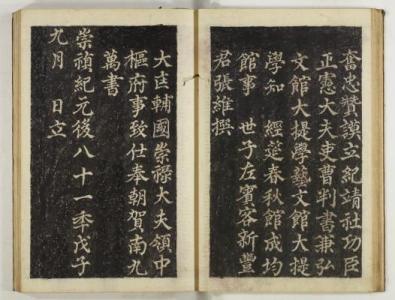 奮忠贊謨立紀靖社功臣
正憲大夫吏曹判書兼弘
文館大提學藝文館大提
學知 經筵春秋館成均
館事 世子左賓客新豐
君張維撰
大匡輔國崇祿大夫領中
樞府事致仕奉朝賀南九
萬書
崇禎紀元後八十一秊戊子
九月 日立